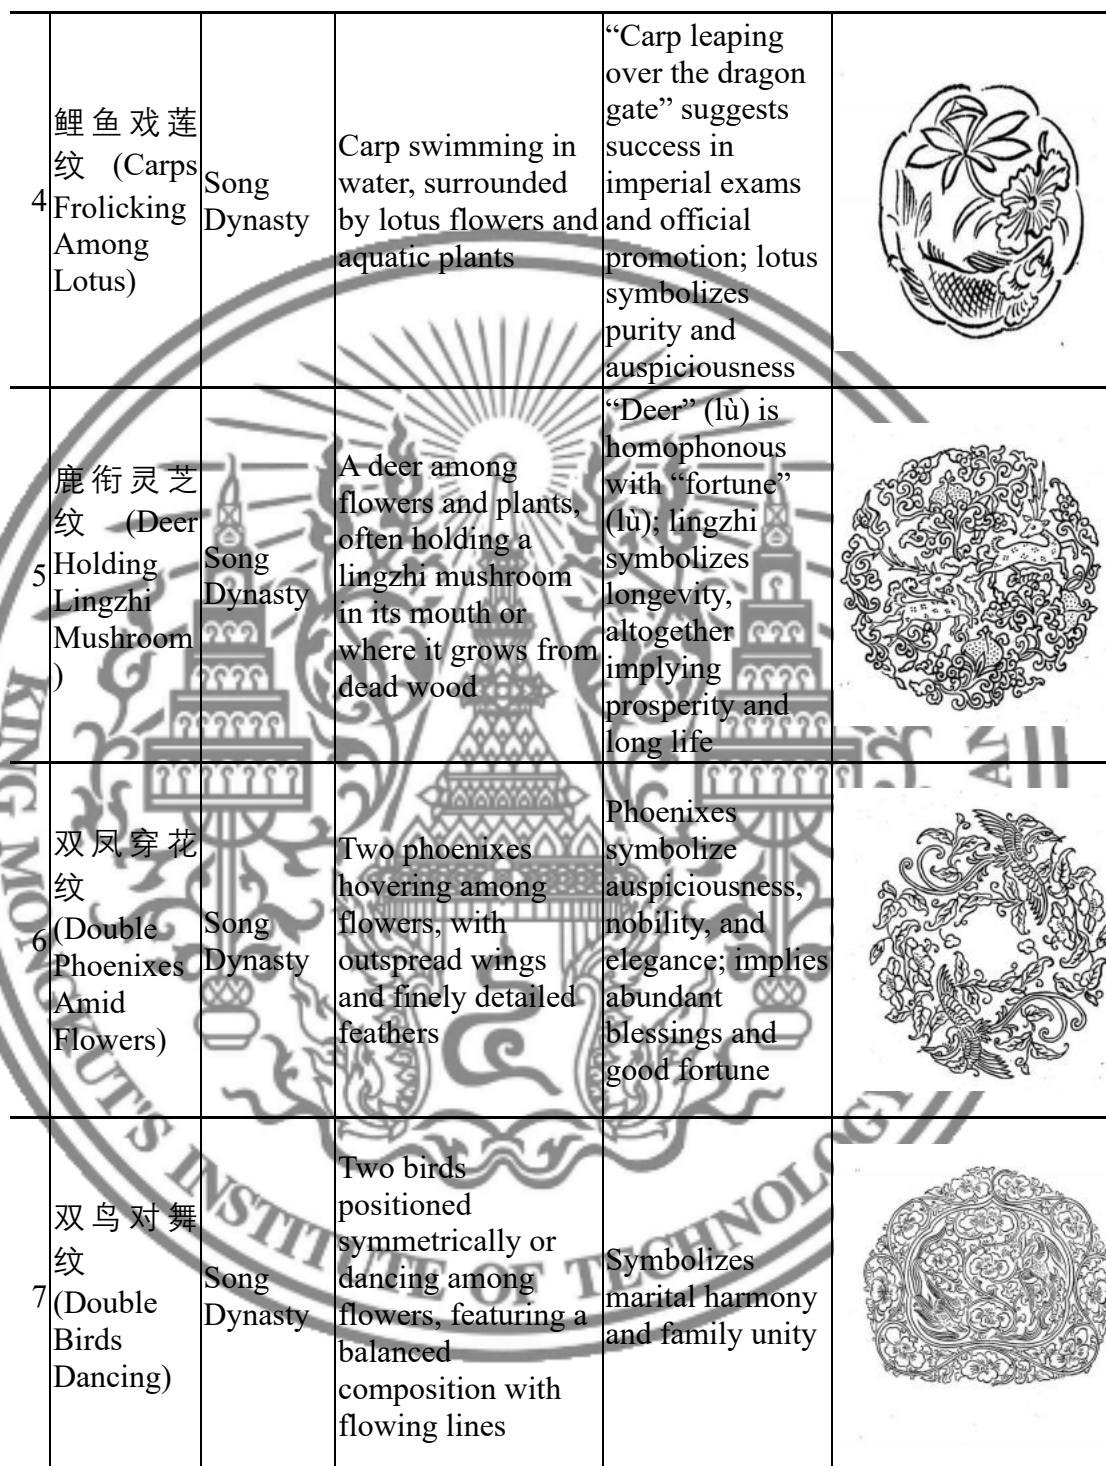 4
鲤鱼戏莲
纹 (Carps
Frolicking
Among
Lotus)
Song
Dynasty
Carp swimming in
water, surrounded
by lotus flowers and
aquatic plants
“Carp leaping
over the dragon
gate” suggests
success in
imperial exams
and official
promotion; lotus
symbolizes
purity and
auspiciousness
5
鹿衔灵芝
纹 (Deer
Holding
Lingzhi
Mushroom
)
Song
Dynasty
A deer among
flowers and plants,
often holding a
lingzhi mushroom
in its mouth or
where it grows from
dead wood
“Deer” (lù) is
homophonous
with “fortune”
(lù); lingzhi
symbolizes
longevity,
altogether
implying
prosperity and
long life
6
双凤穿花
纹
(Double
Phoenixes
Amid
Flowers)
Song
Dynasty
Two phoenixes
hovering among
flowers, with
outspread wings
and finely detailed
feathers
Phoenixes
symbolize
auspiciousness,
nobility, and
elegance; implies
abundant
blessings and
good fortune
7
双鸟对舞
纹
(Double
Birds
Dancing)
Song
Dynasty
Two birds
positioned
symmetrically or
dancing among
flowers, featuring a
balanced
composition with
flowing lines
Symbolizes
marital harmony
and family unity
KING MONGKUT'S INSTITUTE OF TECHNOLOGY